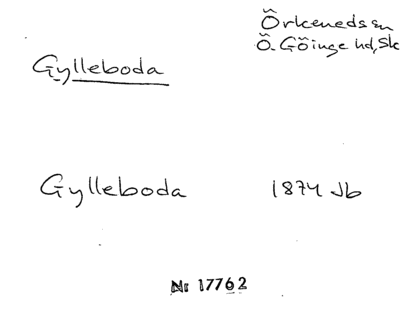 Örkeneds sn
Ö. Göinge hd, Sk
Gylleboda
Gylleboda 1874 Jb
Nr 17762